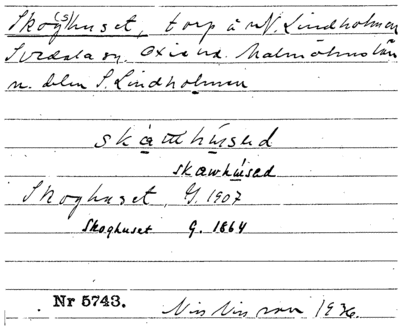 Skog(s)huset, torp å N. Lindholmen
Svedala sn. Oxie hd. Malmöhus län
n. delen S. Lindholmen
skawhúsəd
Skoghuset G. 1907
Skoghuset G. 1864
Nr 5743. Nils Nilsson 1936.